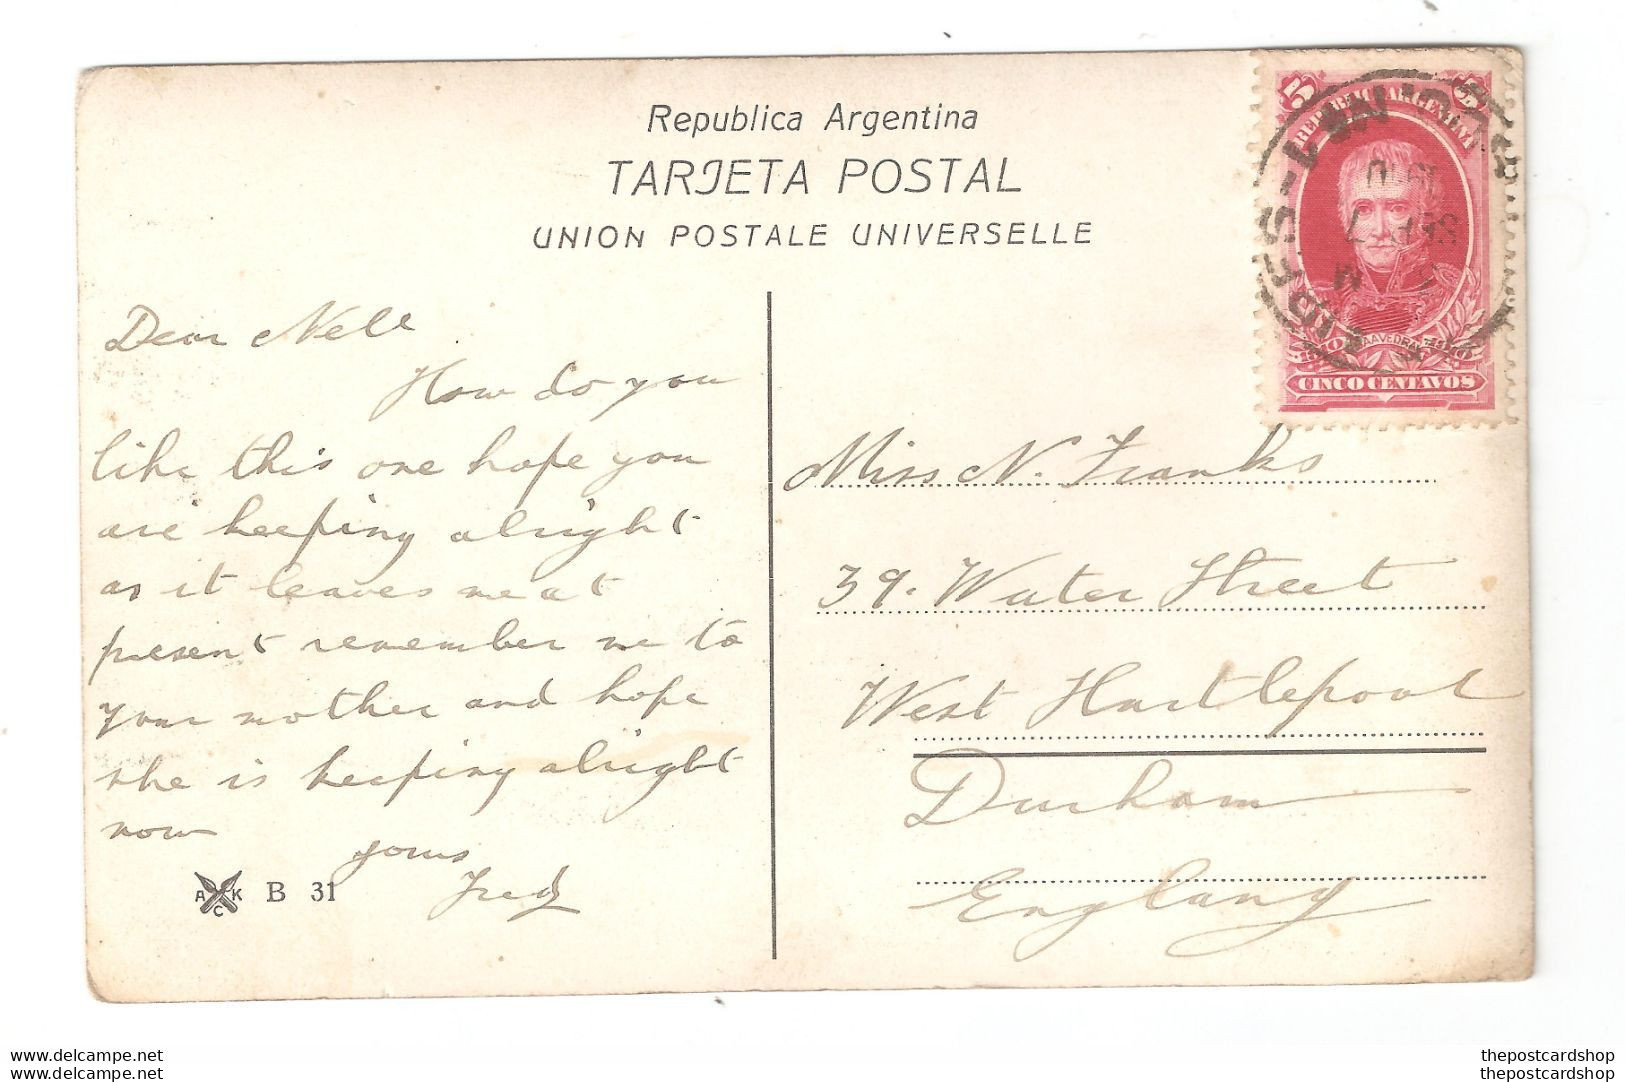 Republica Argentina
TARJETA POSTAL
UNION POSTALE UNIVERSELLE
5 REPUBLICA ARGENTINA 5
1810 SAAVEDRA 1910
CINCO CENTAVOS
SEP 7
1910
Dear Nell
How do you
like this one hope you
are keeping alright
as it leaves me at
present remember me to
your mother and hope
she is keeping alright
now
yours
Fred
A K C B 31
Miss N. Franks
39. Water Street
West Hartlepool
Durham
England
www.delcampe.net
www.delcampe.net
thepostcardshop
thepostcardshop